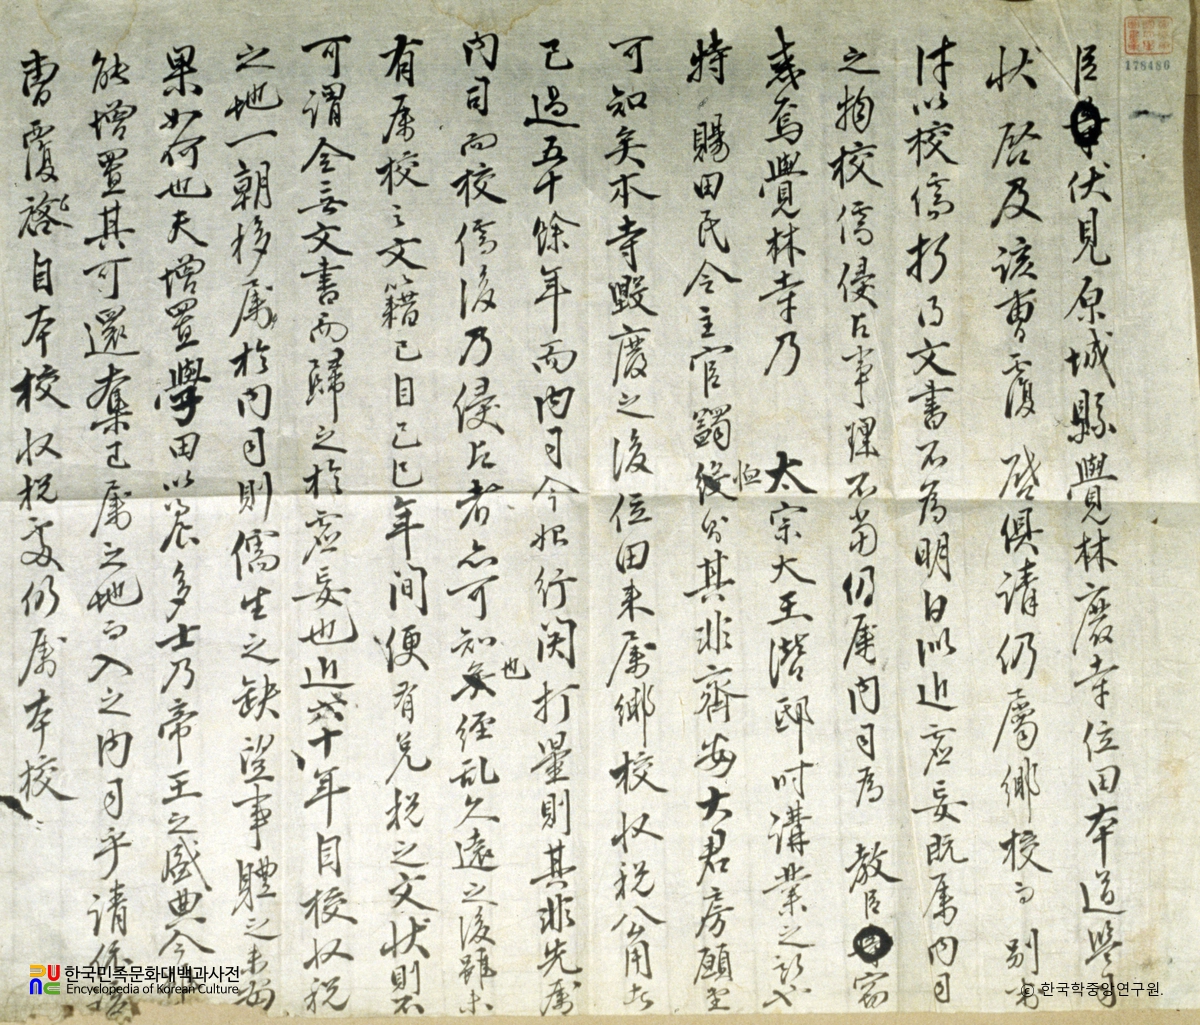 臣伏見原城縣覺林廢寺位田本道監司
狀啓及該曹覆啓俱請仍屬鄕校而別
以校儒所得文書不爲明白似近虛妄旣屬內司
之物校儒侵占事理不當仍屬內司爲敎臣竊
惑焉覺林寺乃太宗大王潛邸時講業之所也
特賜田民令主官蠲役恤其非齊安大君房願
可知矣本寺毁廢之後位田來屬鄕校收稅公用
已過五十餘年而內司今始行關打量則其非先屬
內司而校儒後乃侵占者亦可知也經乱久遠之後雖未
有屬校之文籍已自己巳年間便有免稅之文狀則不
可謂全無文書而歸之於虛妄也近六十年自校收稅
之地一朝移屬於內司則儒生之缺望事體之未妥
果如何也夫增置學田以養多士乃帝王之盛典今
能增置其可還奪已屬之地而入之內司乎請依
曹覆啓自本校收稅處仍屬本校
178486
한국민족문화대백과사전
Encyclopedia of Korean Culture
© 한국학중앙연구원.